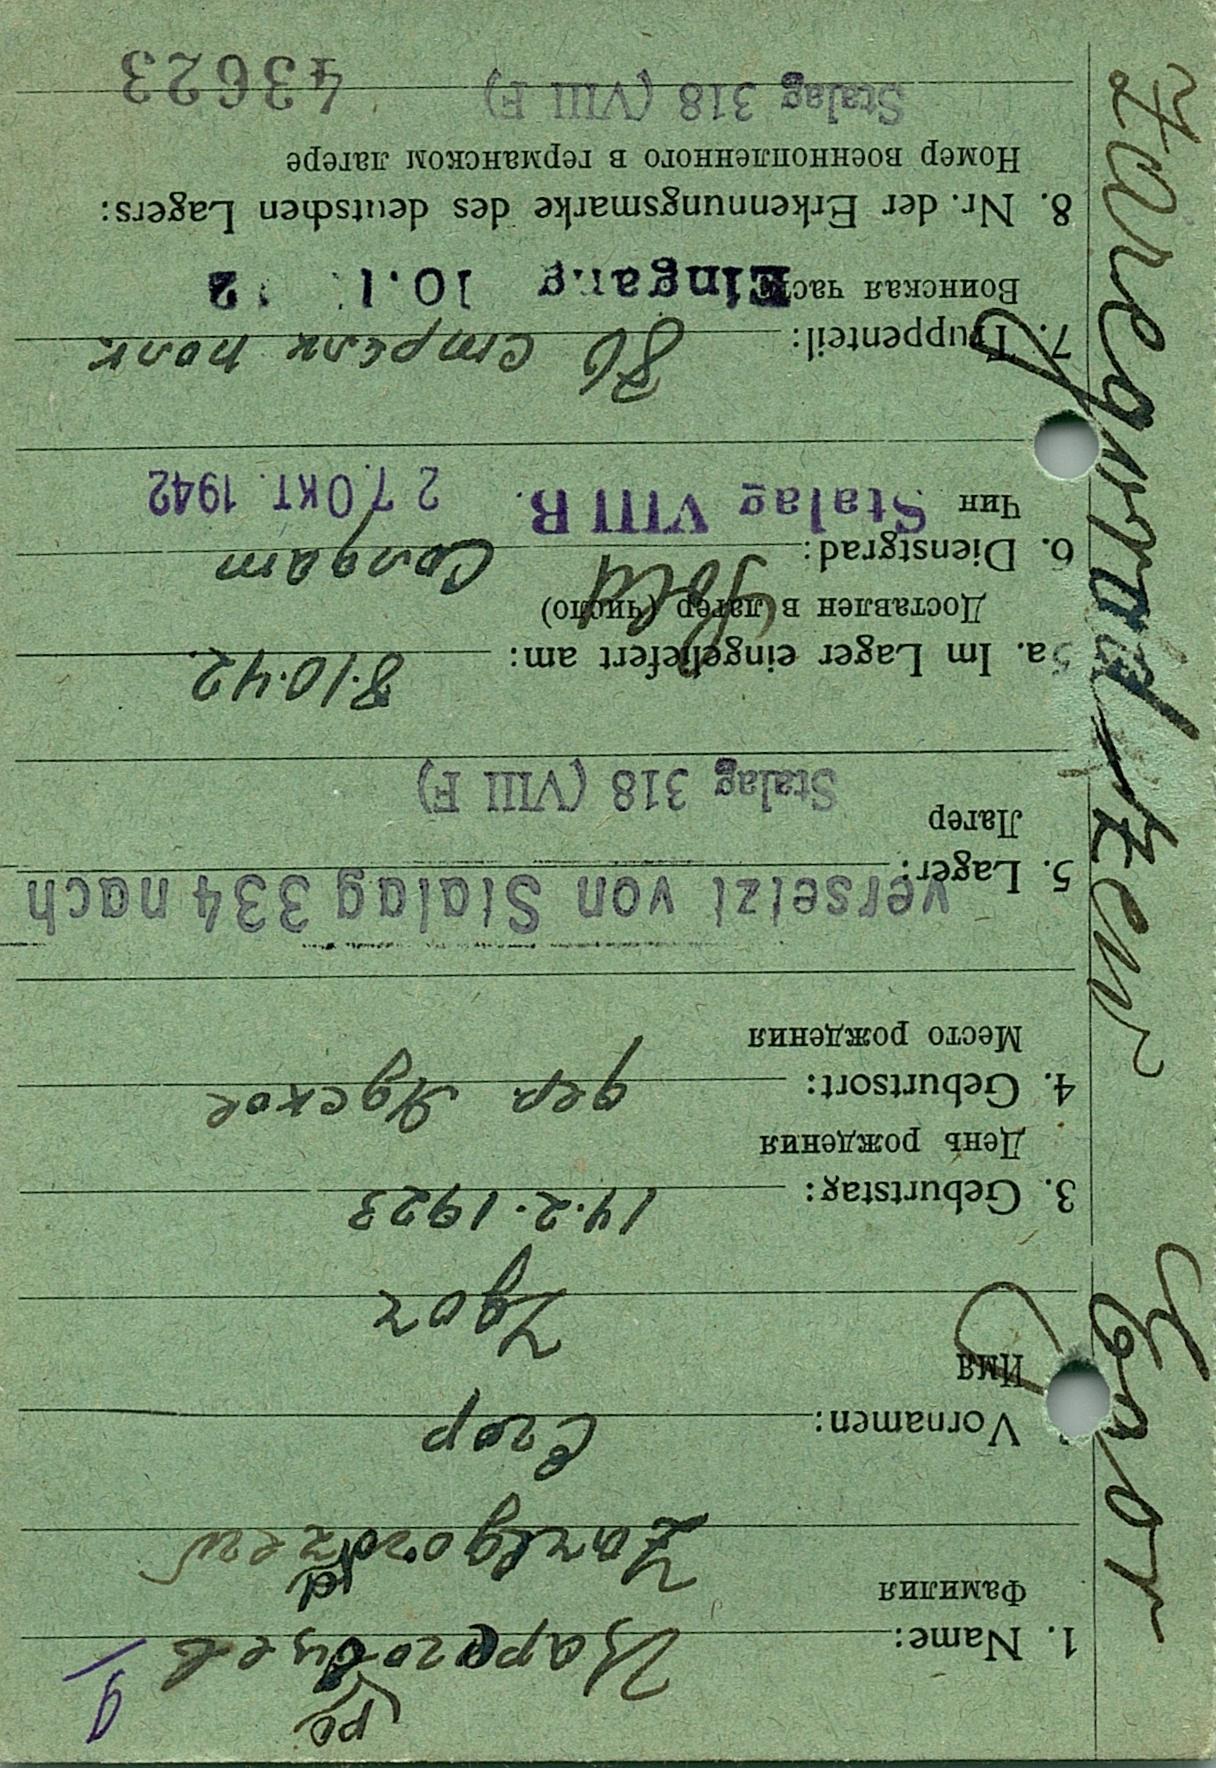 9
ро
1. Name: Царегодцев
Фамилия
Zaregorodzew
Vornamen: Егор
Имя
Egor
3. Geburtstag: 14.2.1923
День рождения
4. Geburtsort: дер Ядское
Место рождения
versetzt von Stalag 334 nach
5. Lager:
Лагер
Stalag 318 (VIII F)
5a. Im Lager eingeliefert am: 8.10.42.
Доставлен в лагер (число)
Sold
6. Dienstgrad: Солдат
Чин Stalag VIII B. 27. Okt. 1942
7. Truppenteil: 86 стрелк полк
Воинская часть Eingang 10.1 2
8. Nr. der Erkennungsmarke des deutschen Lagers:
Номер военнопленного в германском лагере
Stalag 318 (VIII F) 43623
Zaregorodzew Egor